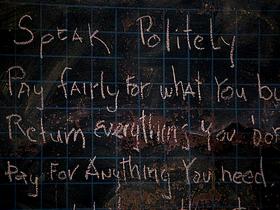 Speak Politely
Pay fairly for what You bu
Return everything you 'bor
Pay For Anything You need